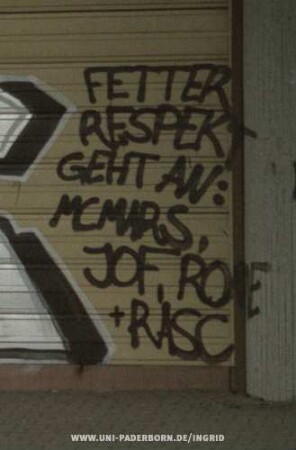 FETTER
RESPEKT
GEHT AN:
MCMARS,
JOF, ROME
+RASC
WWW.UNI-PADERBORN.DE/INGRID